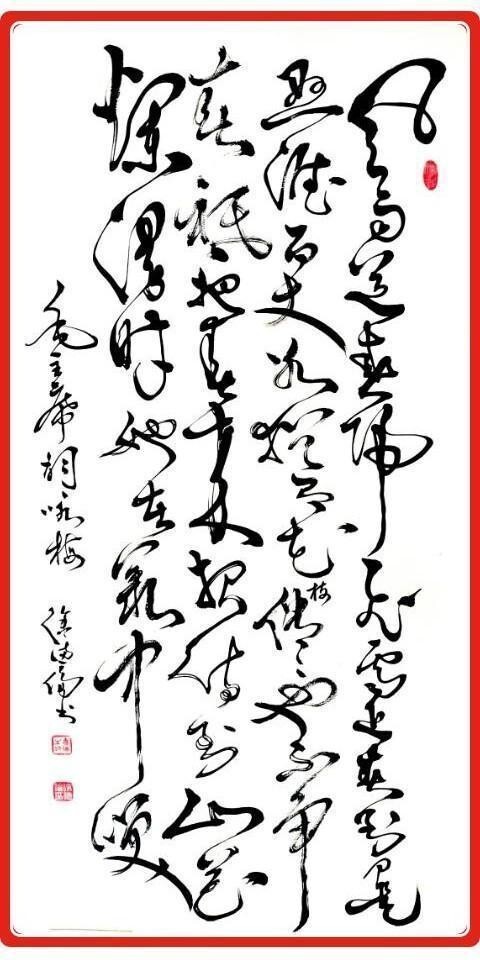 风雨送春归飞雪迎春到已是
悬崖百丈冰犹有花枝俏俏也不争
春祇把春来报待到山花
烂漫时她在丛中笑
毛主席词咏梅